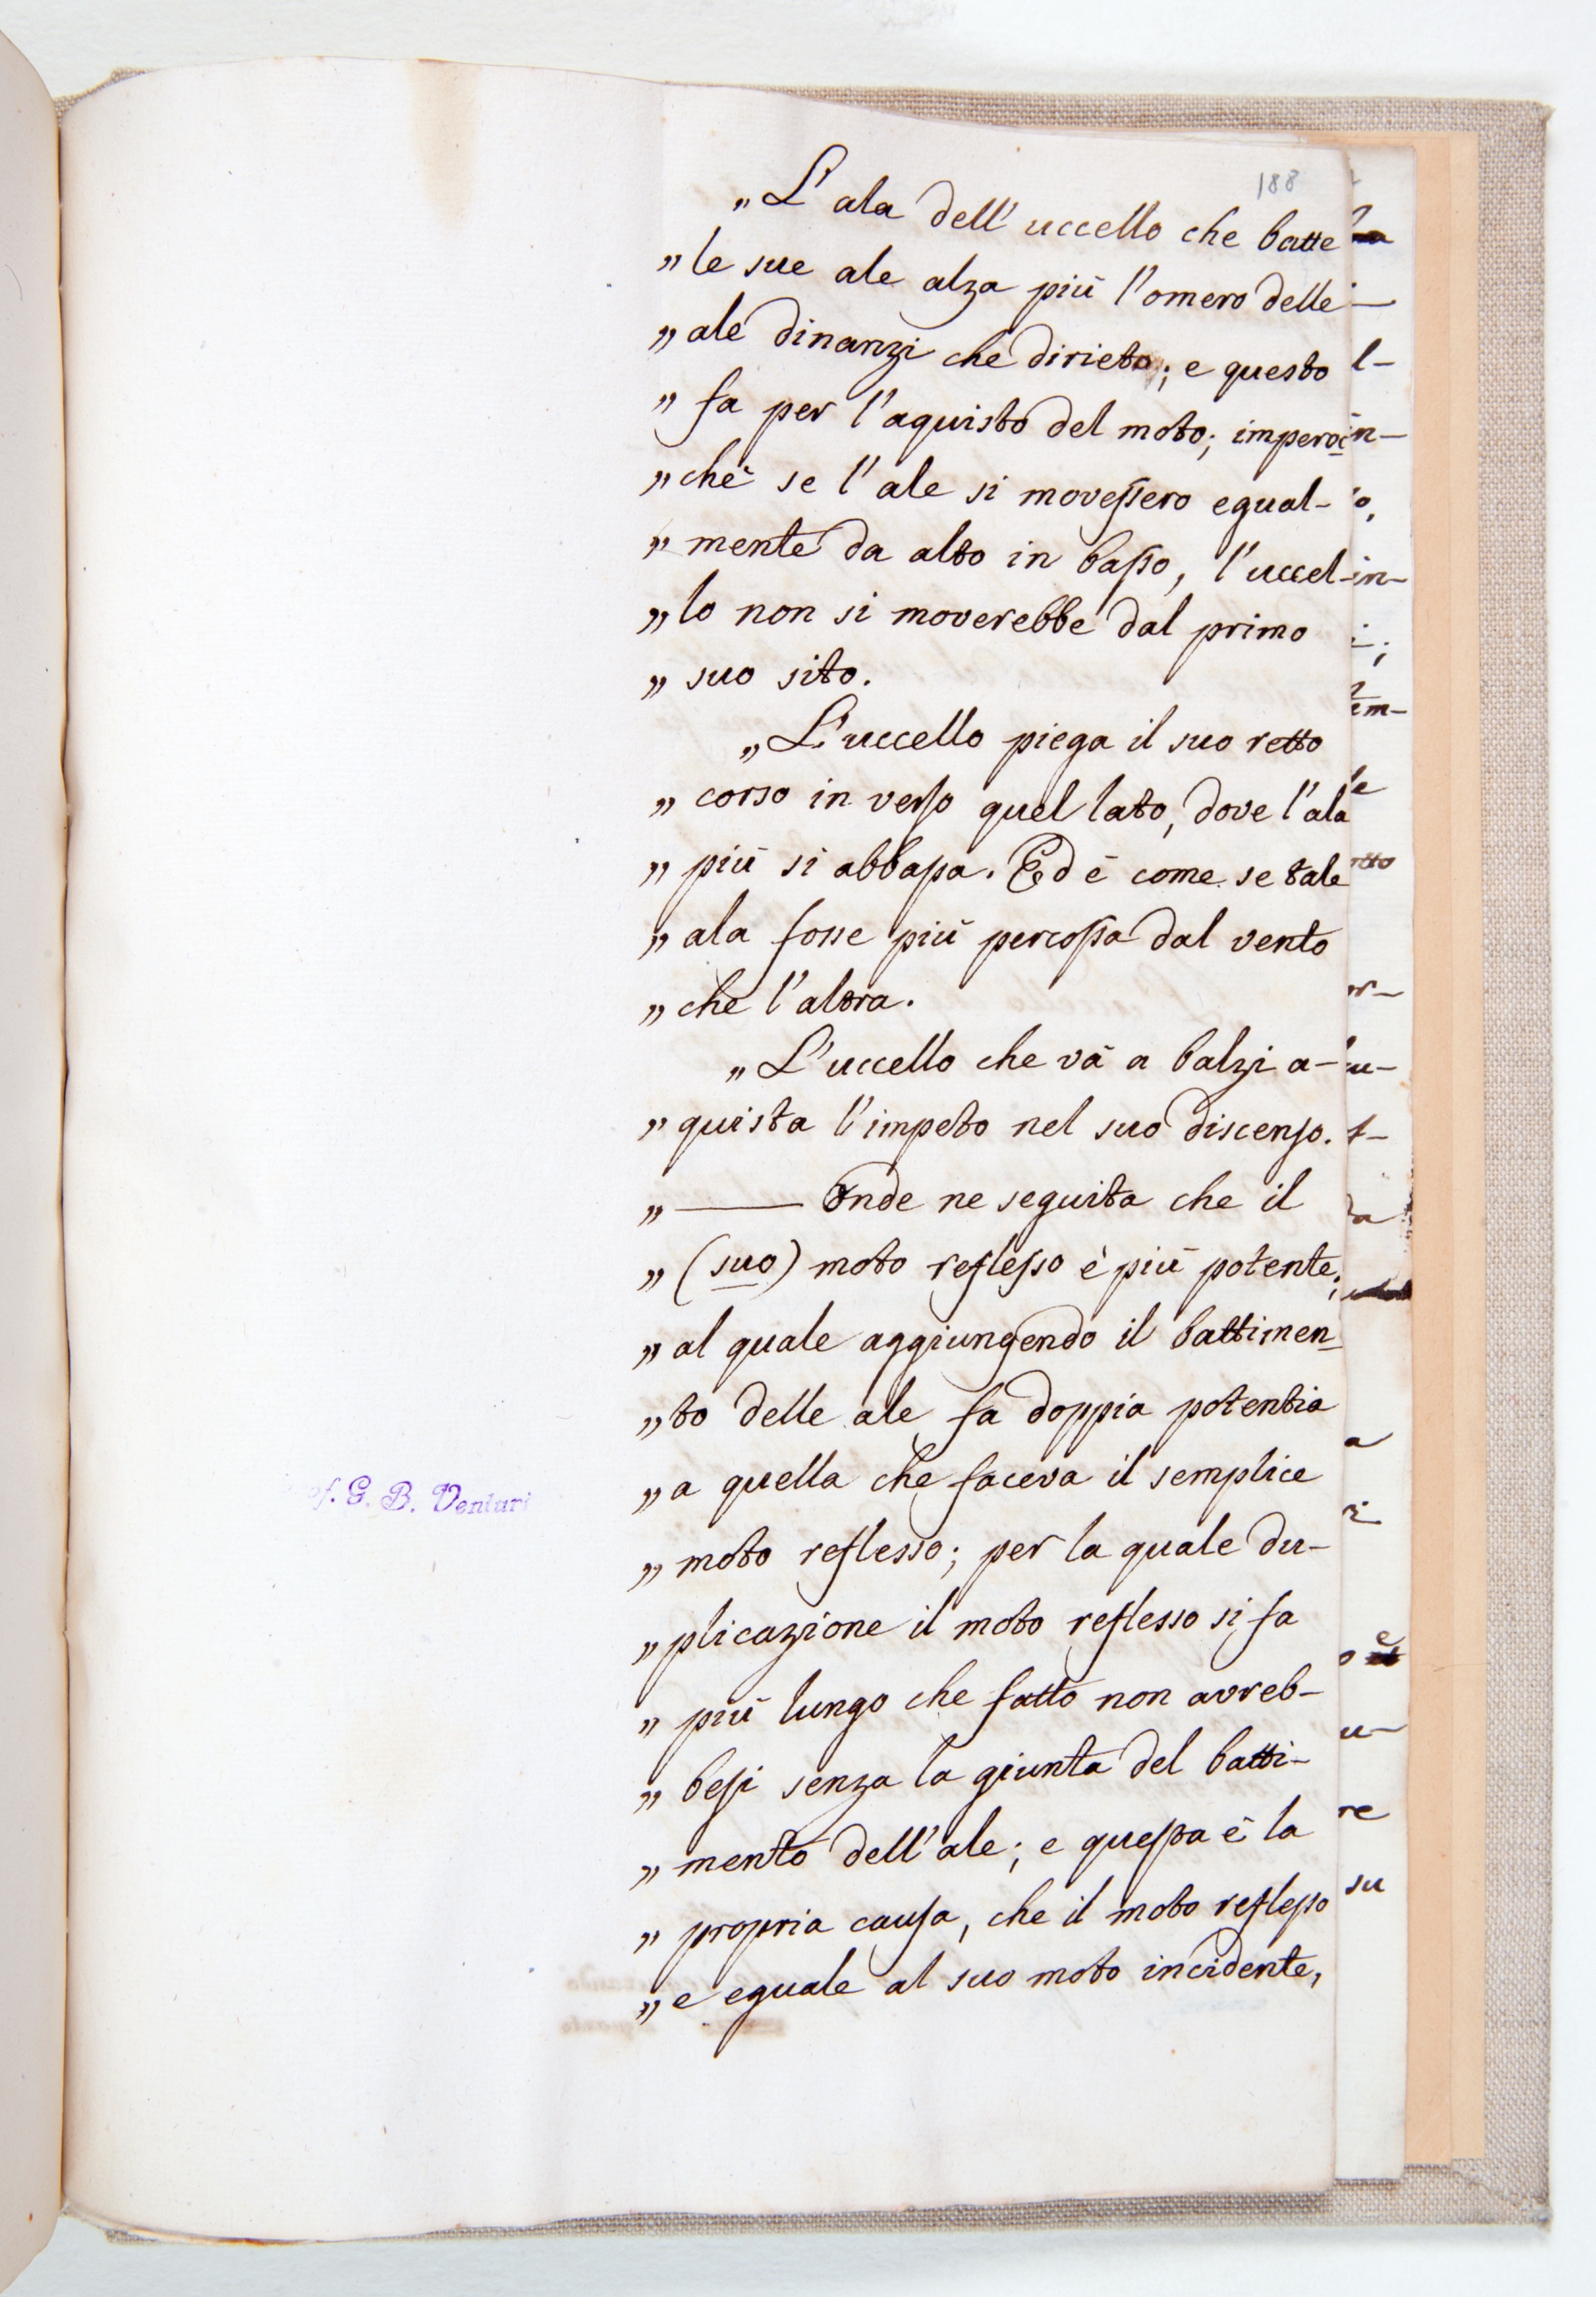 188
„L'ala dell'uccello che batte
„le sue ale alza più l'omero delle
„ale dinanzi che dirieto; e questo
„fa per l'aquisto del moto; imperoc
„chè se l'ale si movessero egual-
„mente da alto in basso, l'uccel-
„lo non si moverebbe dal primo
„suo sito.
„L'uccello piega il suo retto
„corso in verso quel lato, dove l'ala
„più si abbassa. Ed è come se tale
„ala fosse più percossa dal vento
„che l'altra.
„L'uccello che và a balzi a-
„quista l'impeto nel suo discenso.
„—— Onde ne seguita che il
„(suo) moto reflesso è più potente;
„al quale aggiungendo il battimen-
„to delle ale fa doppia potentia
„a quella che faceva il semplice
„moto reflesso; per la quale du-
„plicazione il moto reflesso si fa
„più lungo che fatto non avreb-
„besi senza la giunta del batti-
„mento dell'ale; e questa è la
„propria causa, che il moto reflesso
„e eguale al suo moto incidente,
G. B. Venturi